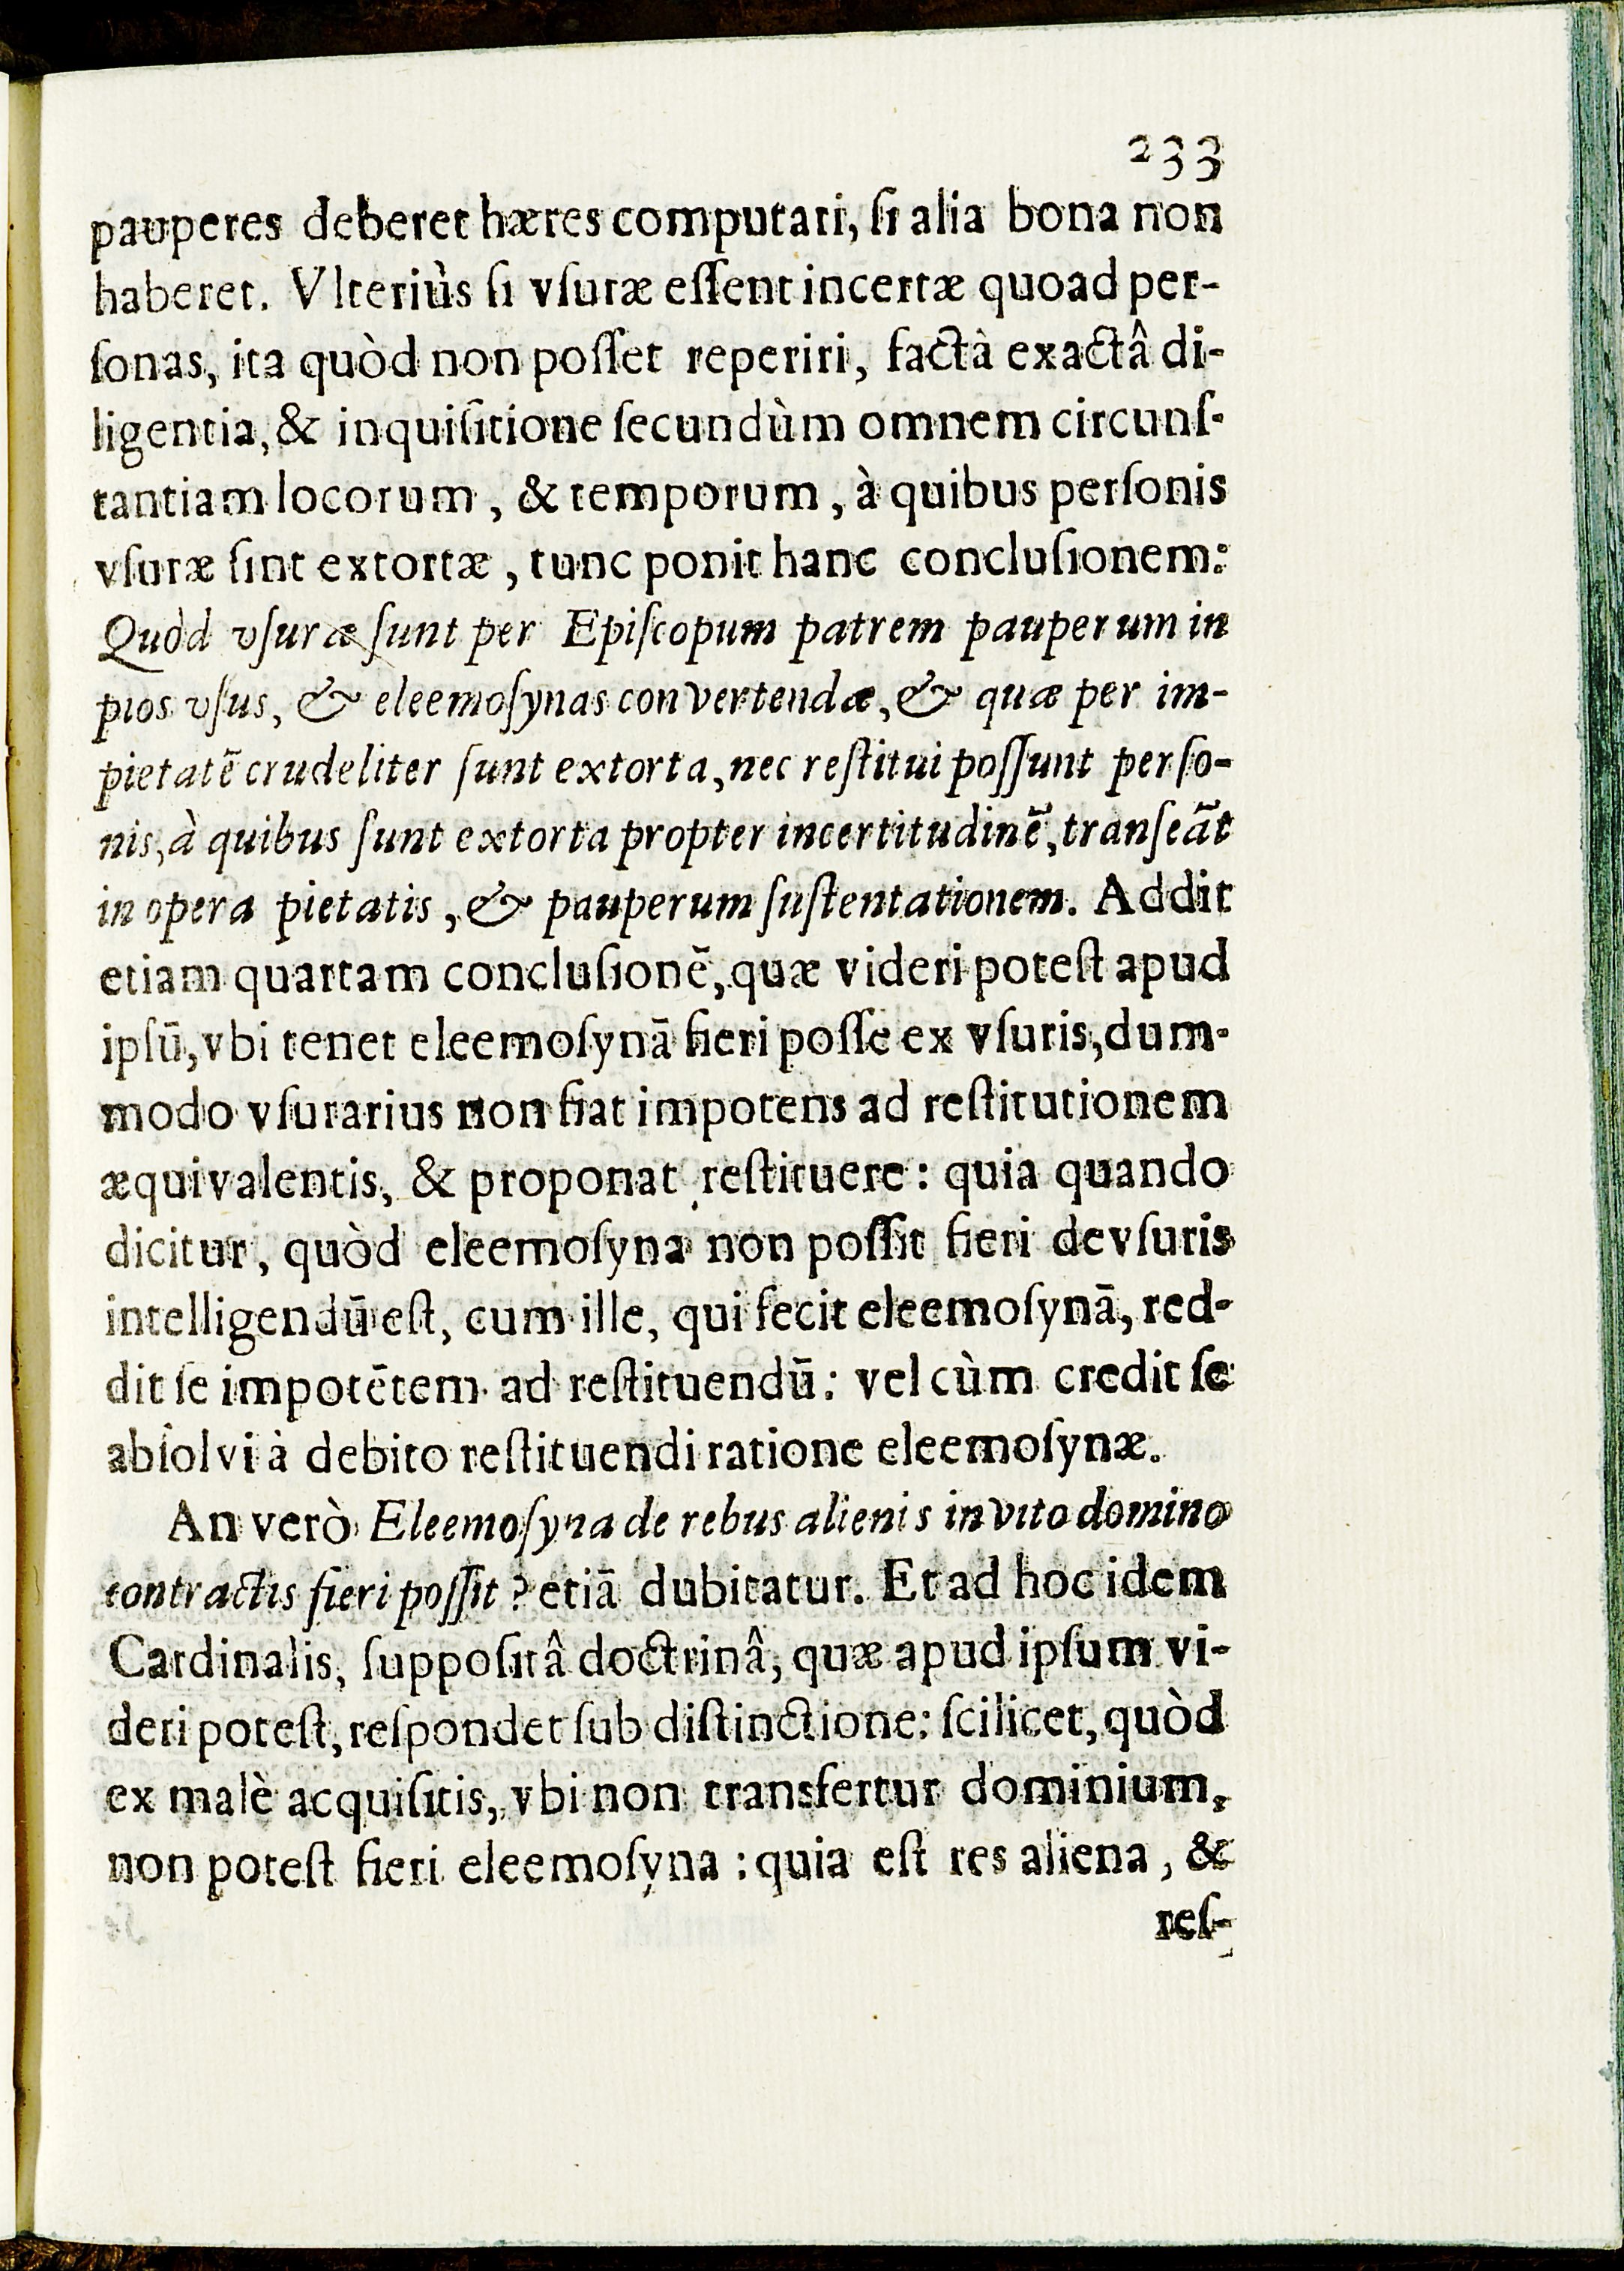 233
pauperes deberet hæres computari, ſi alia bona non
haberet. Vlteriùs ſi vſuræ eſſent incertæ quoad per-
ſonas, ita quòd non poſſet reperiri, factâ exactâ di-
ligentia, & inquiſitione ſecundùm omnem circunſ-
tantiam locorum, & temporum, à quibus perſonis
vſuræ ſint extortæ, tunc ponit hanc concluſionem:
Quòd vſuræ ſunt per Epiſcopum patrem pauperum in
pios vſus, & eleemoſynas convertendæ, & quæ per im-
pietatē crudeliter ſunt extorta, nec reſtitui poſſunt perſo-
nis, à quibus ſunt extorta propter incertitudinē, tranſeāt
in opera pietatis, & pauperum ſuſtentationem. Addit
etiam quartam concluſionē, quæ videri poteſt apud
ipſū, vbi tenet eleemoſynā fieri poſſe ex vſuris, dum-
modo vſurarius non fiat impotens ad reſtitutionem
æquivalentis, & proponat reſtituere: quia quando
dicitur, quòd eleemoſyna non poſſit fieri de vſuris
intelligendū eſt, cum ille, qui fecit eleemoſynā, red-
dit ſe impotētem ad reſtituendū: vel cùm credit ſe
abſolvi à debito reſtituendi ratione eleemoſynæ.
An verò Eleemoſyna de rebus alienis invito domino
contractis fieri poſſit? etiā dubitatur. Et ad hoc idem
Cardinalis, ſuppoſitâ doctrinâ, quæ apud ipſum vi-
deri poteſt, reſpondet ſub diſtinctione: ſcilicet, quòd
ex malè acquiſitis, vbi non transfertur dominium,
non poteſt fieri eleemoſyna: quia eſt res aliena, &
reſ-